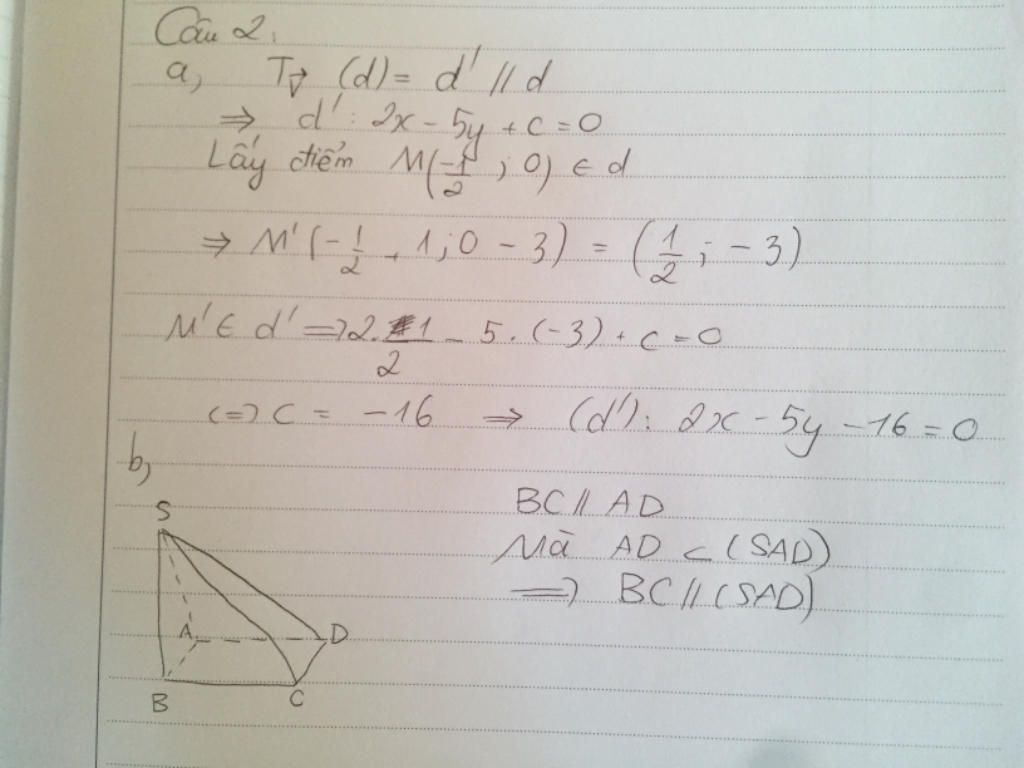 Câu 2.
a, T_v⃗ (d) = d' // d
⇒ d' : 2x - 5y + c = 0
Lấy điểm M(-1/2 ; 0) ∈ d
⇒ M'(-1/2 + 1 ; 0 - 3) = (1/2 ; -3)
M' ∈ d' ⇒ 2. 1/2 - 5 . (-3) + c = 0
⇔ c = -16 ⇒ (d') : 2x - 5y - 16 = 0
b,
BC // AD
Mà AD ⊂ (SAD)
⇒ BC // (SAD)
S
A D
B C